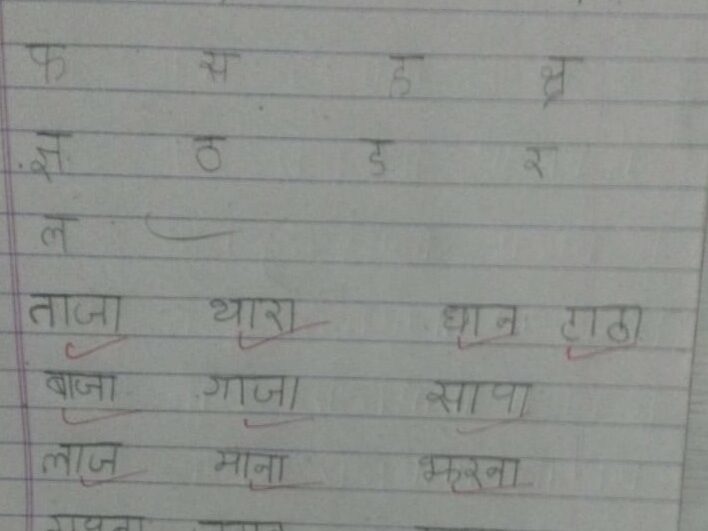 फ स ह क्ष
ज्ञ ठ ड र
ल
ताजा थारा धान टाठा
बाजा गाजा सापा
लाज माना झरना